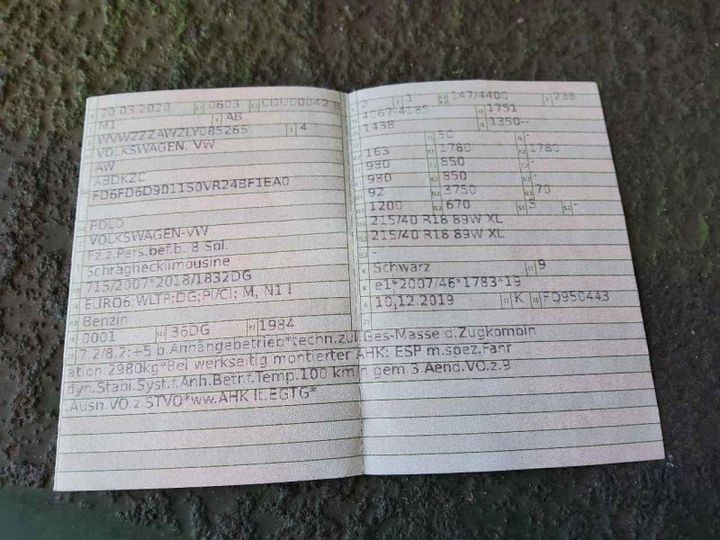 20.03.2020 0603 CQU00042
M1 AB
WVWZZZAWZLY085265 4
VOLKSWAGEN, VW
AW
ABDKZC
FD6FD6D9011S0VR24BF1EA0
POLO
VOLKSWAGEN-VW
Fz.z.Pers.bef.b. 8 Spl.
Schräghecklimousine
715/2007*2018/1832DG
EURO6 WLTP;DG;PI/CI; M, N1 I
Benzin
0001 36DG 1984
7.2/8.2:+5 b.Anhängebetrieb*techn.zul.Ges-Masse d.Zugkombin
ation 2980kg*Bei werkseitig montierter AHK: ESP m.spez.Fahr
dyn.Stabi.Syst.f.Anh.Betr.f.Temp.100 km/h gem.3.Aend.VO.z.9
.Ausn.VO.z STVO*ww.AHK lt.EGTG*
2 1 147/4400 238
4067-4185 1751
1438 1350--
50 -
163 1780 1780
980 850 -
980 850 -
92 3750 70
1200 670 5 -
215/40 R18 89W XL
215/40 R18 89W XL
-
Schwarz 9
e1*2007/46*1783*19
10.12.2019 K FQ950443